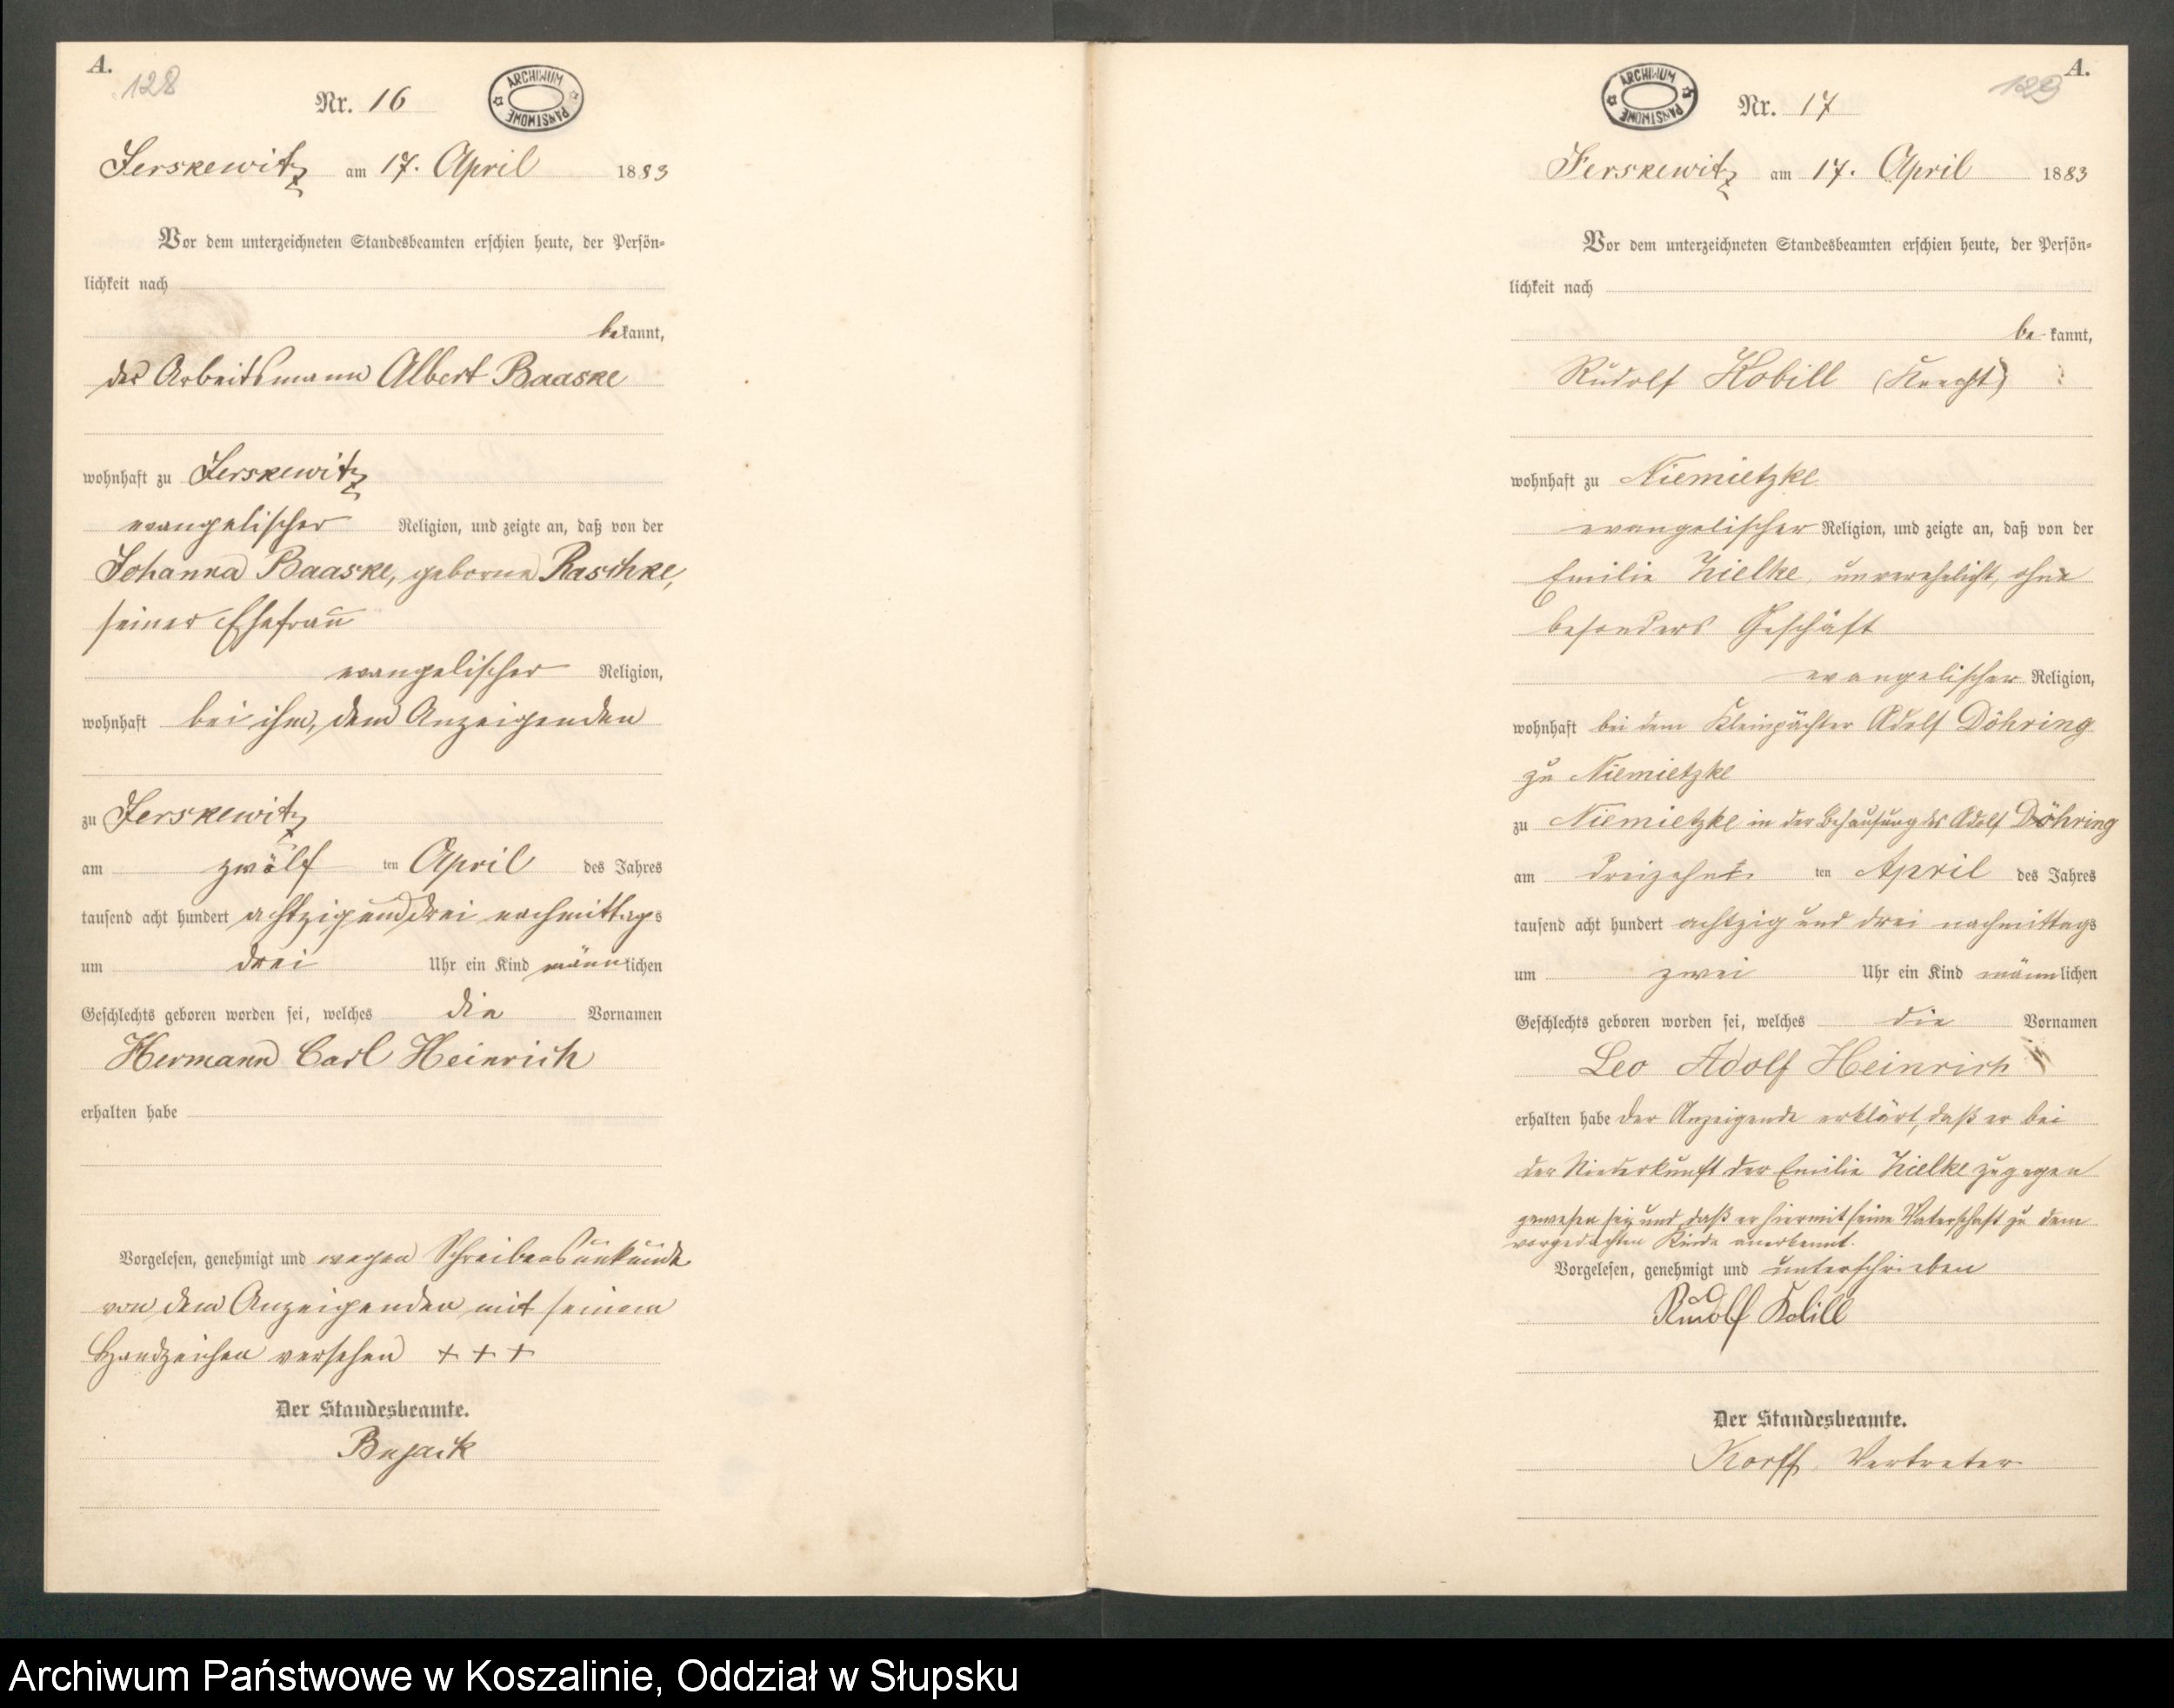 A.
128
Nr. 16
ARCHIWUM PAŃSTWOWE
Jerskewitz am 17. April 1883
Vor dem unterzeichneten Standesbeamten erschien heute, der Persön-
lichkeit nach
bekannt,
der Arbeitsmann Albert Baaske
wohnhaft zu Jerskewitz
evangelischer Religion, und zeigte an, daß von der
Johanna Baaske, geborne Raschke,
seiner Ehefrau
evangelischer Religion,
wohnhaft bei ihm, dem Anzeigenden
zu Jerskewitz
am zwölf ten April des Jahres
tausend acht hundert achtzig und drei nachmittags
um drei Uhr ein Kind männlichen
Geschlechts geboren worden sei, welches die Vornamen
Hermann Carl Heinrich
erhalten habe
Vorgelesen, genehmigt und wegen Schreibensunkunde
von dem Anzeigenden mit seinem
Handzeichen versehen + + +
Der Standesbeamte.
Bujack
A.
129
ARCHIWUM PAŃSTWOWE
Nr. 17
Jerskewitz am 17. April 1883
Vor dem unterzeichneten Standesbeamten erschien heute, der Persön-
lichkeit nach
be kannt,
Rudolf Kobill (Knecht)
wohnhaft zu Niemietzke
evangelischer Religion, und zeigte an, daß von der
Emilie Zielke, unverehelicht, ohne
besonders Geschäft
evangelischer Religion,
wohnhaft bei dem Kleinpächter Adolf Döhring
zu Niemietzke
zu Niemietzke in der Behausung des Adolf Döhring
am dreizehn ten April des Jahres
tausend acht hundert achtzig und drei nachmittags
um zwei Uhr ein Kind männlichen
Geschlechts geboren worden sei, welches die Vornamen
Leo Adolf Heinrich
erhalten habe Der Anzeigende erklärt, daß er bei
der Niederkunft der Emilie Zielke zugegen
gewesen sei und daß er hiermit seine Vaterschaft zu dem
vorgedachten Kinde anerkennt.
Vorgelesen, genehmigt und unterschrieben
Rudolf Kobill
Der Standesbeamte.
Korff, Vertreter
Archiwum Państwowe w Koszalinie, Oddział w Słupsku